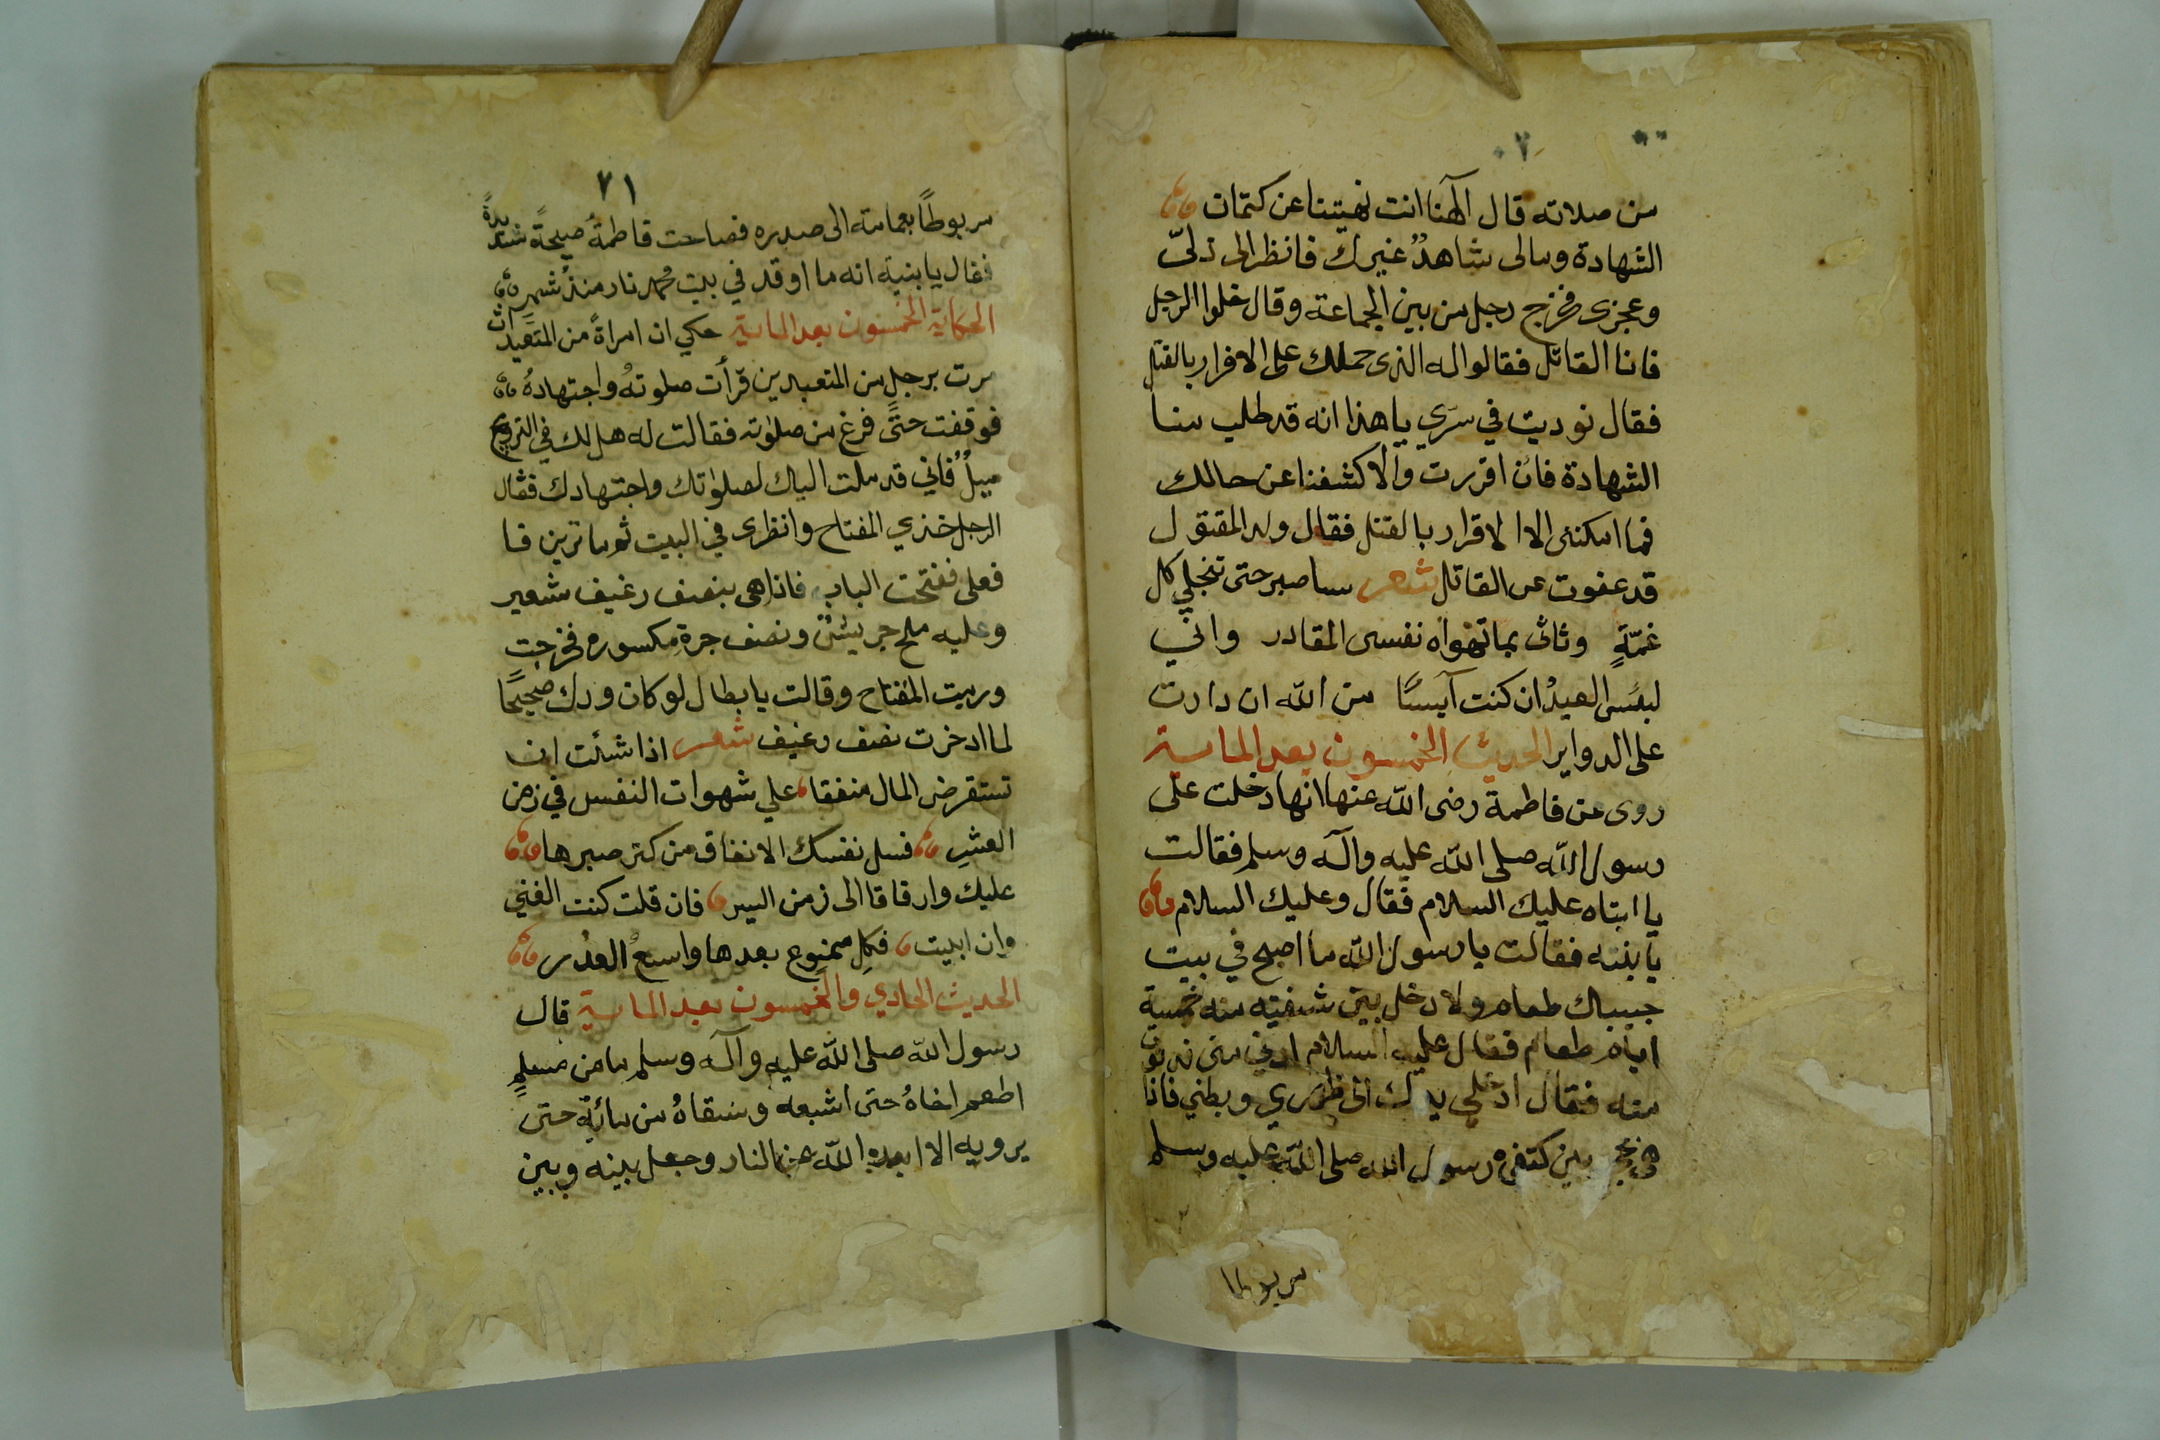 من صلاته قال الٓهنا انت نهيتنا عن كتمان
الشهادة ومالى شاهدٌ غيرك فانظر الى ذلىّ
وعجزى فخرج رجل من بين الجماعة وقال خلوا الرجل
فانا القاتل فقالوا له الذى حملك على الاقرار بالقتل
فقال نوديت في سرّي يا هذا انه قد طلب منا
الشهادة فان اقررت والا كشفنا عن حالك
فما امكننى الا الاقرار بالقتل فقال ولد المقتول
قد عفوت عن القاتل شعر ساصبر حتى تنجلي كل
غمّةٍ وتاتى بما تهواه نفسى المقادر وانّي
لبئس العبدُ ان كنت آيسًا من الله ان دارت
على الدواير الحديث الخمسون بعد الماية
روى عن فاطمة رضى الله عنها انها دخلت على
رسول الله صلى الله عليه وآله وسلم فقالت
يا ابتاه عليك السلام فقال وعليك السلام
يا بنته فقالت يا رسول الله ما اصبح في بيت
حبيباك طعام ولا دخل بين شفتيه منه خمسة
ايام طعام فقال عليه السلام ادني منى فدنوت
منه فقال ادخلي يدك الى ظهري وبطني فاذا
هى بحجر بين كتفى رسول الله صلى الله عليه وسلم
مربوطا
٧١
مربوطًا بعمامته الى صدره فصاحت فاطمةُ صيحةً شديدةً
فقال يا بنية انه ما اوقد في بيت محمد نار منذُ شهر
الحكاية الخمسون بعد الماية حكي ان امراةً من المتعبدات
مرت برجل من المتعبدين قرأت صلوتهُ واجتهادهُ
فوقفت حتىَّ فرغ من صلوٰته فقالت له هل لك في التزويج
ميلٌ فاني قد ملت اليك لصلوٰتك واجتهادك فقال
الرجل خذي المفتاح وانظرى في البيت ثم ما ترين فا
فعلى ففتحت الباب فاذا هى بنصف رغيف شعير
وعليه ملح جريش ونصف جرة مكسوره فخرجت
ورميت المفتاح وقالت يا بطال لو كان ودك صحيحًا
لما ادخرت نصف رغيف شعر اذا شئت ان
تستقرض المال منفقا علي شهوات النفس في زمن
العشرِ فسل نفسك الانفاق من كنز صبرها
عليك وارفاقا الى زمن اليسر فان قلت كنت الغني
وان ابليت فكل ممنوع بعدها واسعُ العذر
الحديث الحادي والخمسون بعد الماية قال
رسول الله صلى الله عليه وآله وسلم ما من مسلمٍ
اطعم اخاهُ حتى اشبعه وسقاهُ من مائهِ حتى
يرويه الا ابعده الله عن النار وجعل بينه وبين